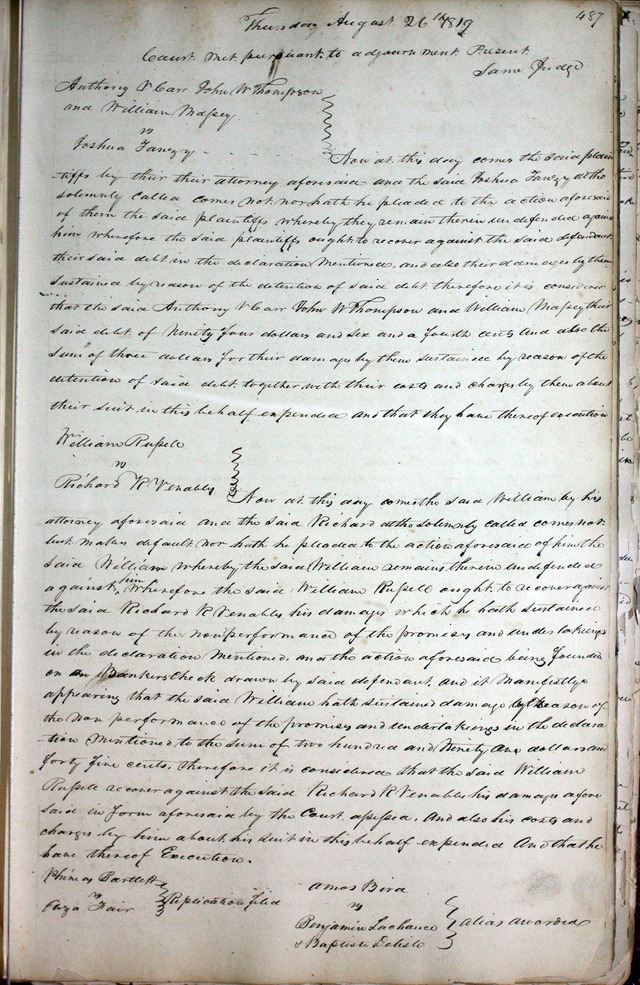 487
Thursday August 26th 1819
Court met pursuant to adjournment Present
Same Judge
Anthony V Carr John W Thompson
and William Massey
vs
Joshua Tanzy
Now at this day comes the said plain
tiffs by their their attorney aforesaid and the said Joshua Tanzy altho
solemnly called comes not nor hath he pleaded to the action aforesaid
of them the said plaintiffs whereby they remain therein undefended against
him wherefore the said plaintiffs ought to recover against the said defendant
their said debt in the declaration mentioned, and also their damages by them
sustained by reason of the detention of said debt therefore it is considered
that the said Anthony V Carr John W Thompson and William Massey their
said debt of Ninety four dollars and six and a fourth cents and also the
sum of three dollars for their damages by them sustained by reason of the
detention of said debt together with their costs and charges by them about
their suit in this behalf expended and that they have thereof execution
William Russell
vs
Richard R Venables
Now at this day comes the said William by his
attorney aforesaid and the said Richard altho solemnly called comes not
but makes default nor hath he pleaded to the action aforesaid of him the
said William whereby the said William remains therein undefended
against him Wherefore the said William Russell ought to recover against
the said Richard R Venables his damages which he hath sustained
by reason of the nonperformance of the promises and undertakings
in the declaration mentioned, and the action aforesaid being founded
on an Bankers Check drawn by said defendant, and it Manifestly
appearing that the said William hath sustained damage by reason of
the non performance of the promises and undertakings in the declara
tion mentioned to the sum of two hundred and Ninety One dollars and
forty five cents, therefore it is considered that the said William
Russell recover against the said Richard R Venables his damages afore
said in form aforesaid by the Court assessed, And also his costs and
charges by him about his suit in this behalf expended And that he
have thereof Execution.
Phineas Bartlett
vs
Fair
Replication filed
Amos Bird
vs
Benjamin Lachance
& Baptiste Delisle
alias awarded